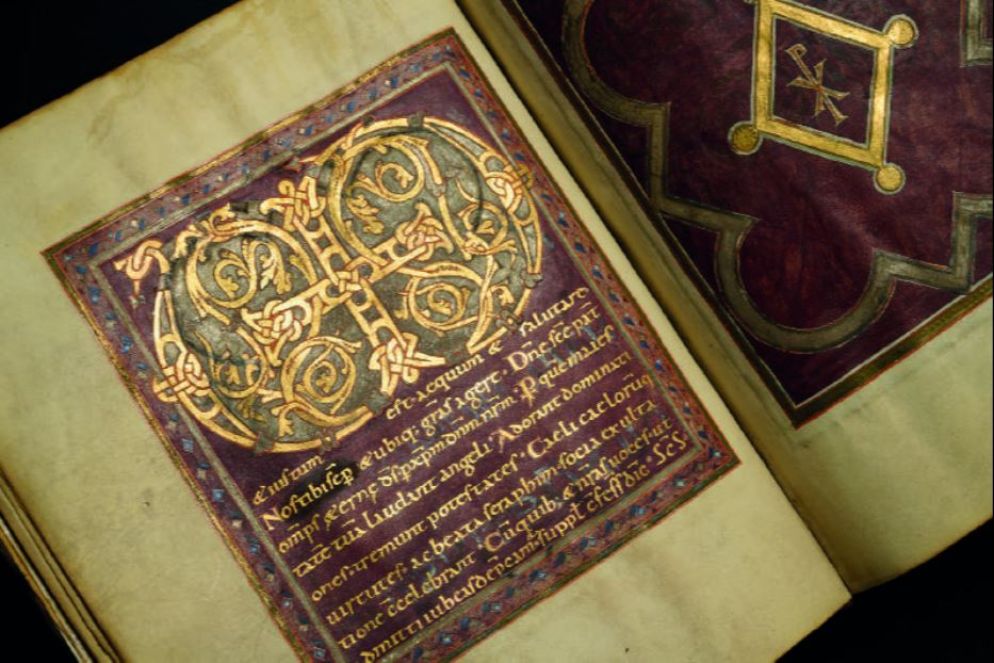 & iustum est· aequum & salutare
Nos tibi sēp & ubiq; grās agere· Dn̄e scē pat
omp̄s &erne d̄s p xp̄m dn̄m nr̄m· P quē maies
tatē tuā laudant angeli· Adorant dominati
ones· tremunt potestates· Caeli caelorūq;
uirtutes· ac beata seraphim· socia exulta
tione c̄celebrant· Cū quib; & nr̄as uoces· ut
dmitti iubeas dep̄cam suppl̄ Sc̄s